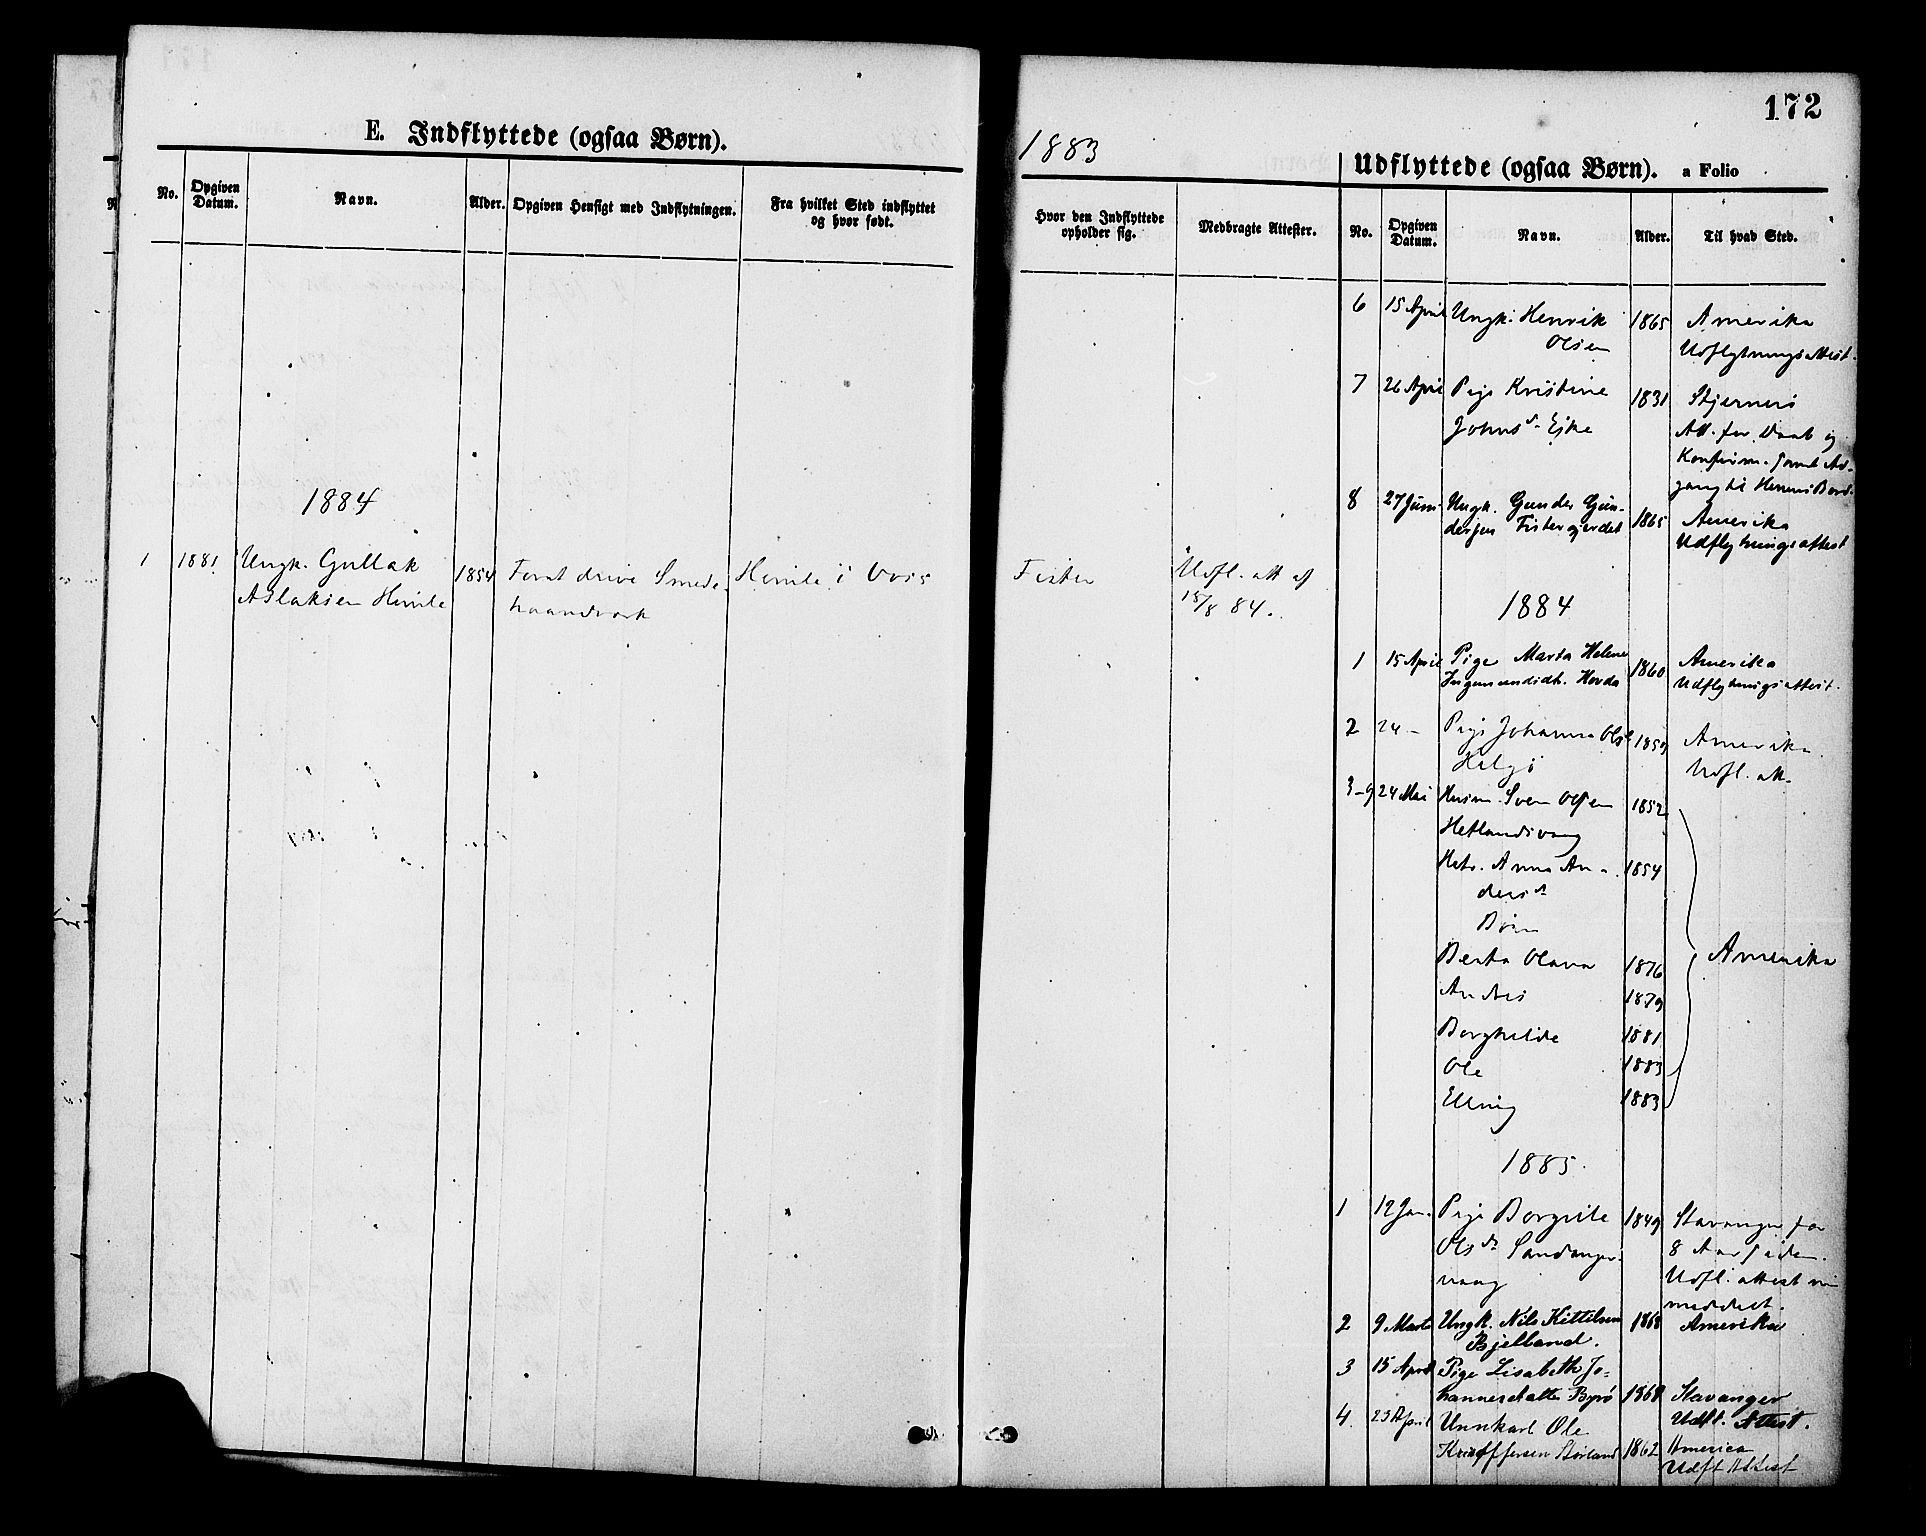 E. Indflyttede (ogsaa Børn).
No.
Opgiven Datum.
Navn.
Alder.
Opgiven Hensigt med Indflytningen.
Fra hvilket Sted indflyttet
og hvor født.
1884
1 1881 Ungk. Gullak 1854 Forat drive Smede- Himle i Vos
Aslaksen Himle haandverk
172
1883
Udflyttede (ogsaa Børn). a Folio
Hvor den Indflyttede
opholder sig.
Medbragte Attester.
No.
Opgiven Datum.
Navn.
Alder.
Til hvad Sted.
Fister Udfl. att af
18/8 84.
6 15 April Ungk. Henrik 1865 Amerika
Olsen Udflytningsattest.
7 26 April Pige Kristine 1831
Johnsd. Eike Att. for Daab og
Konfirm. samt Ad-
gang til Herrens Bord.
8 27 Juni Ungk. Gunder Gun- 1865 Amerika
dersen Fistergjerdet Udflytningsattest
1884
1 15 April Pige Marta Helene 1860 Amerika
Ingemundsdt. Hovda Udflytningsattest.
2 24 - Pige Johanna Olsd. 1859 Amerika.
Helgö Udfl. att.
3-9 24 Mai Husm. Sven Olsen 1852
Hetlandsvaag
Anna An- 1854
dersd.
Börn
Berta Olava 1876 Amerika
Andres 1879
Borghilde 1881
Ole 1883
Elling 1883
1885.
1 12 Jan. Pige Borgilde 1849 Stavanger for
Olsd. Sandanger- 8 Aar siden.
vaag Udfl. attest nu
meddelt.
2 9 Marts Ungk. Nils Kittilsen 1868 Amerika
Bjelland.
3 15 April Pige Lisabeth Jo-
hannesdatter Byrö 1868 Stavanger
Udfl. Attest.
4. 23 April Unnkarl Ole
Kristoffersen Störland 1862 America
Udfl Attest